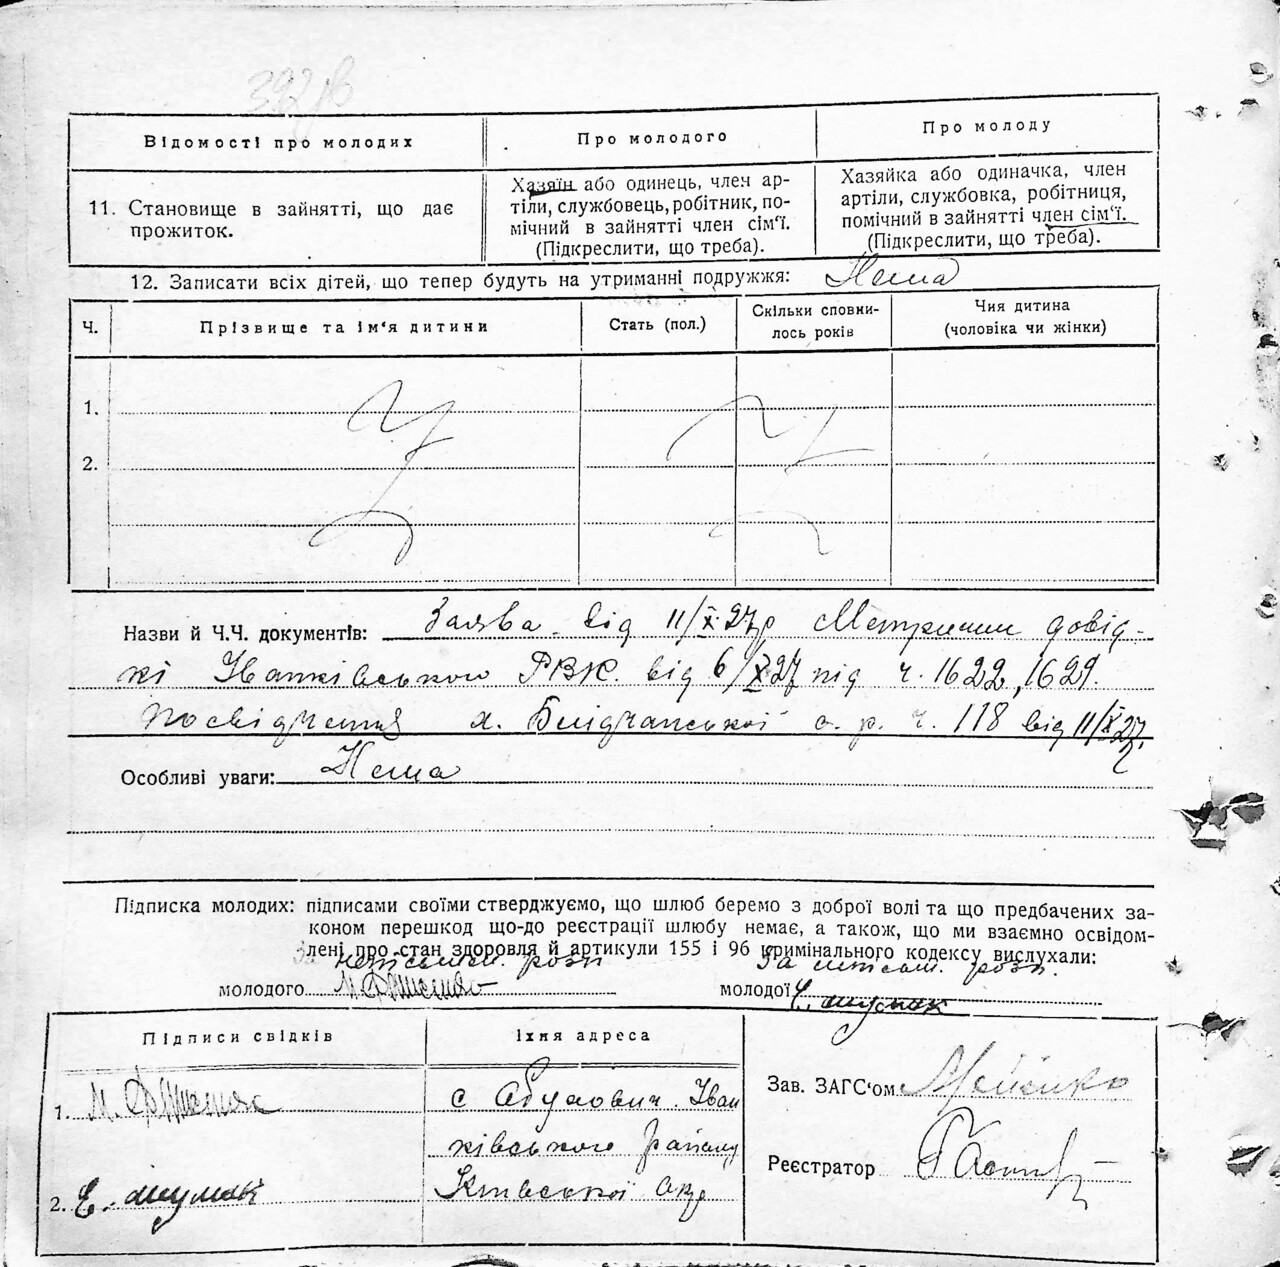 Відомості про молодих
Про молодого
Про молоду
11. Становище в зайнятті, що дає
прожиток.
Хазяїн або одинець, член ар-
тіли, службовець, робітник, по-
мічний в зайнятті член сім'ї.
(Підкреслити, що треба).
Хазяйка або одиначка, член
артіли, службовка, робітниця,
помічний в зайнятті член сім'ї.
(Підкреслити, що треба).
12. Записати всіх дітей, що тепер будуть на утриманні подружжя: Нема
Ч.
Прізвище та ім'я дитини
Стать (пол.)
Скільки сповни-
лось років
Чия дитина
(чоловіка чи жінки)
1.
2.
Назви й Ч.Ч. документів: Заява від 11/X 27р Метричні довід-
кі Іванківського РВК. від 6/X 27 під ч. 1622, 1629.
Посвідчення с. р. ч. 118 від 11/X 27.
Особливі уваги: Нема
Підписка молодих: підписами своїми стверджуємо, що шлюб беремо з доброї волі та що предбачених за-
коном перешкод що-до реєстрації шлюбу немає, а також, що ми взаємно освідом-
лені про стан здоровля й артикули 155 і 96 кримінального кодексу вислухали:
За неписьмен. розп
За неписьм. розп.
молодого
молодої Є. Шумак
Підписи свідків
їхня адреса
1. М.
с Обуховичі Іван
ківського району
Київської окр
2. Є. Шумак
Зав. ЗАГС'ом
Реєстратор